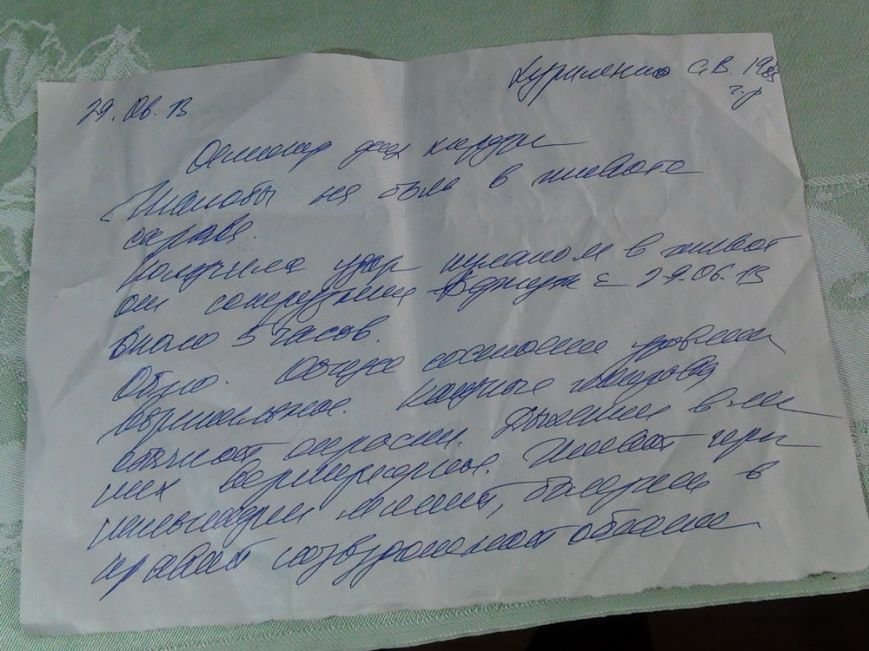 Куриленко С.В. 1983
г.р
29.06.13
Осмотр
Жалобы на боли в животе
справа.
Получила удар кулаком в живот
от сотрудника 29.06.13
около 5 часов.
Общее состояние удовлетво
рительное. Кожные покровы
обычной окраски. Дыхание в лег
ких везикулярное. Живот при
пальпации мягкий, болезнен в
правой подвздошной области